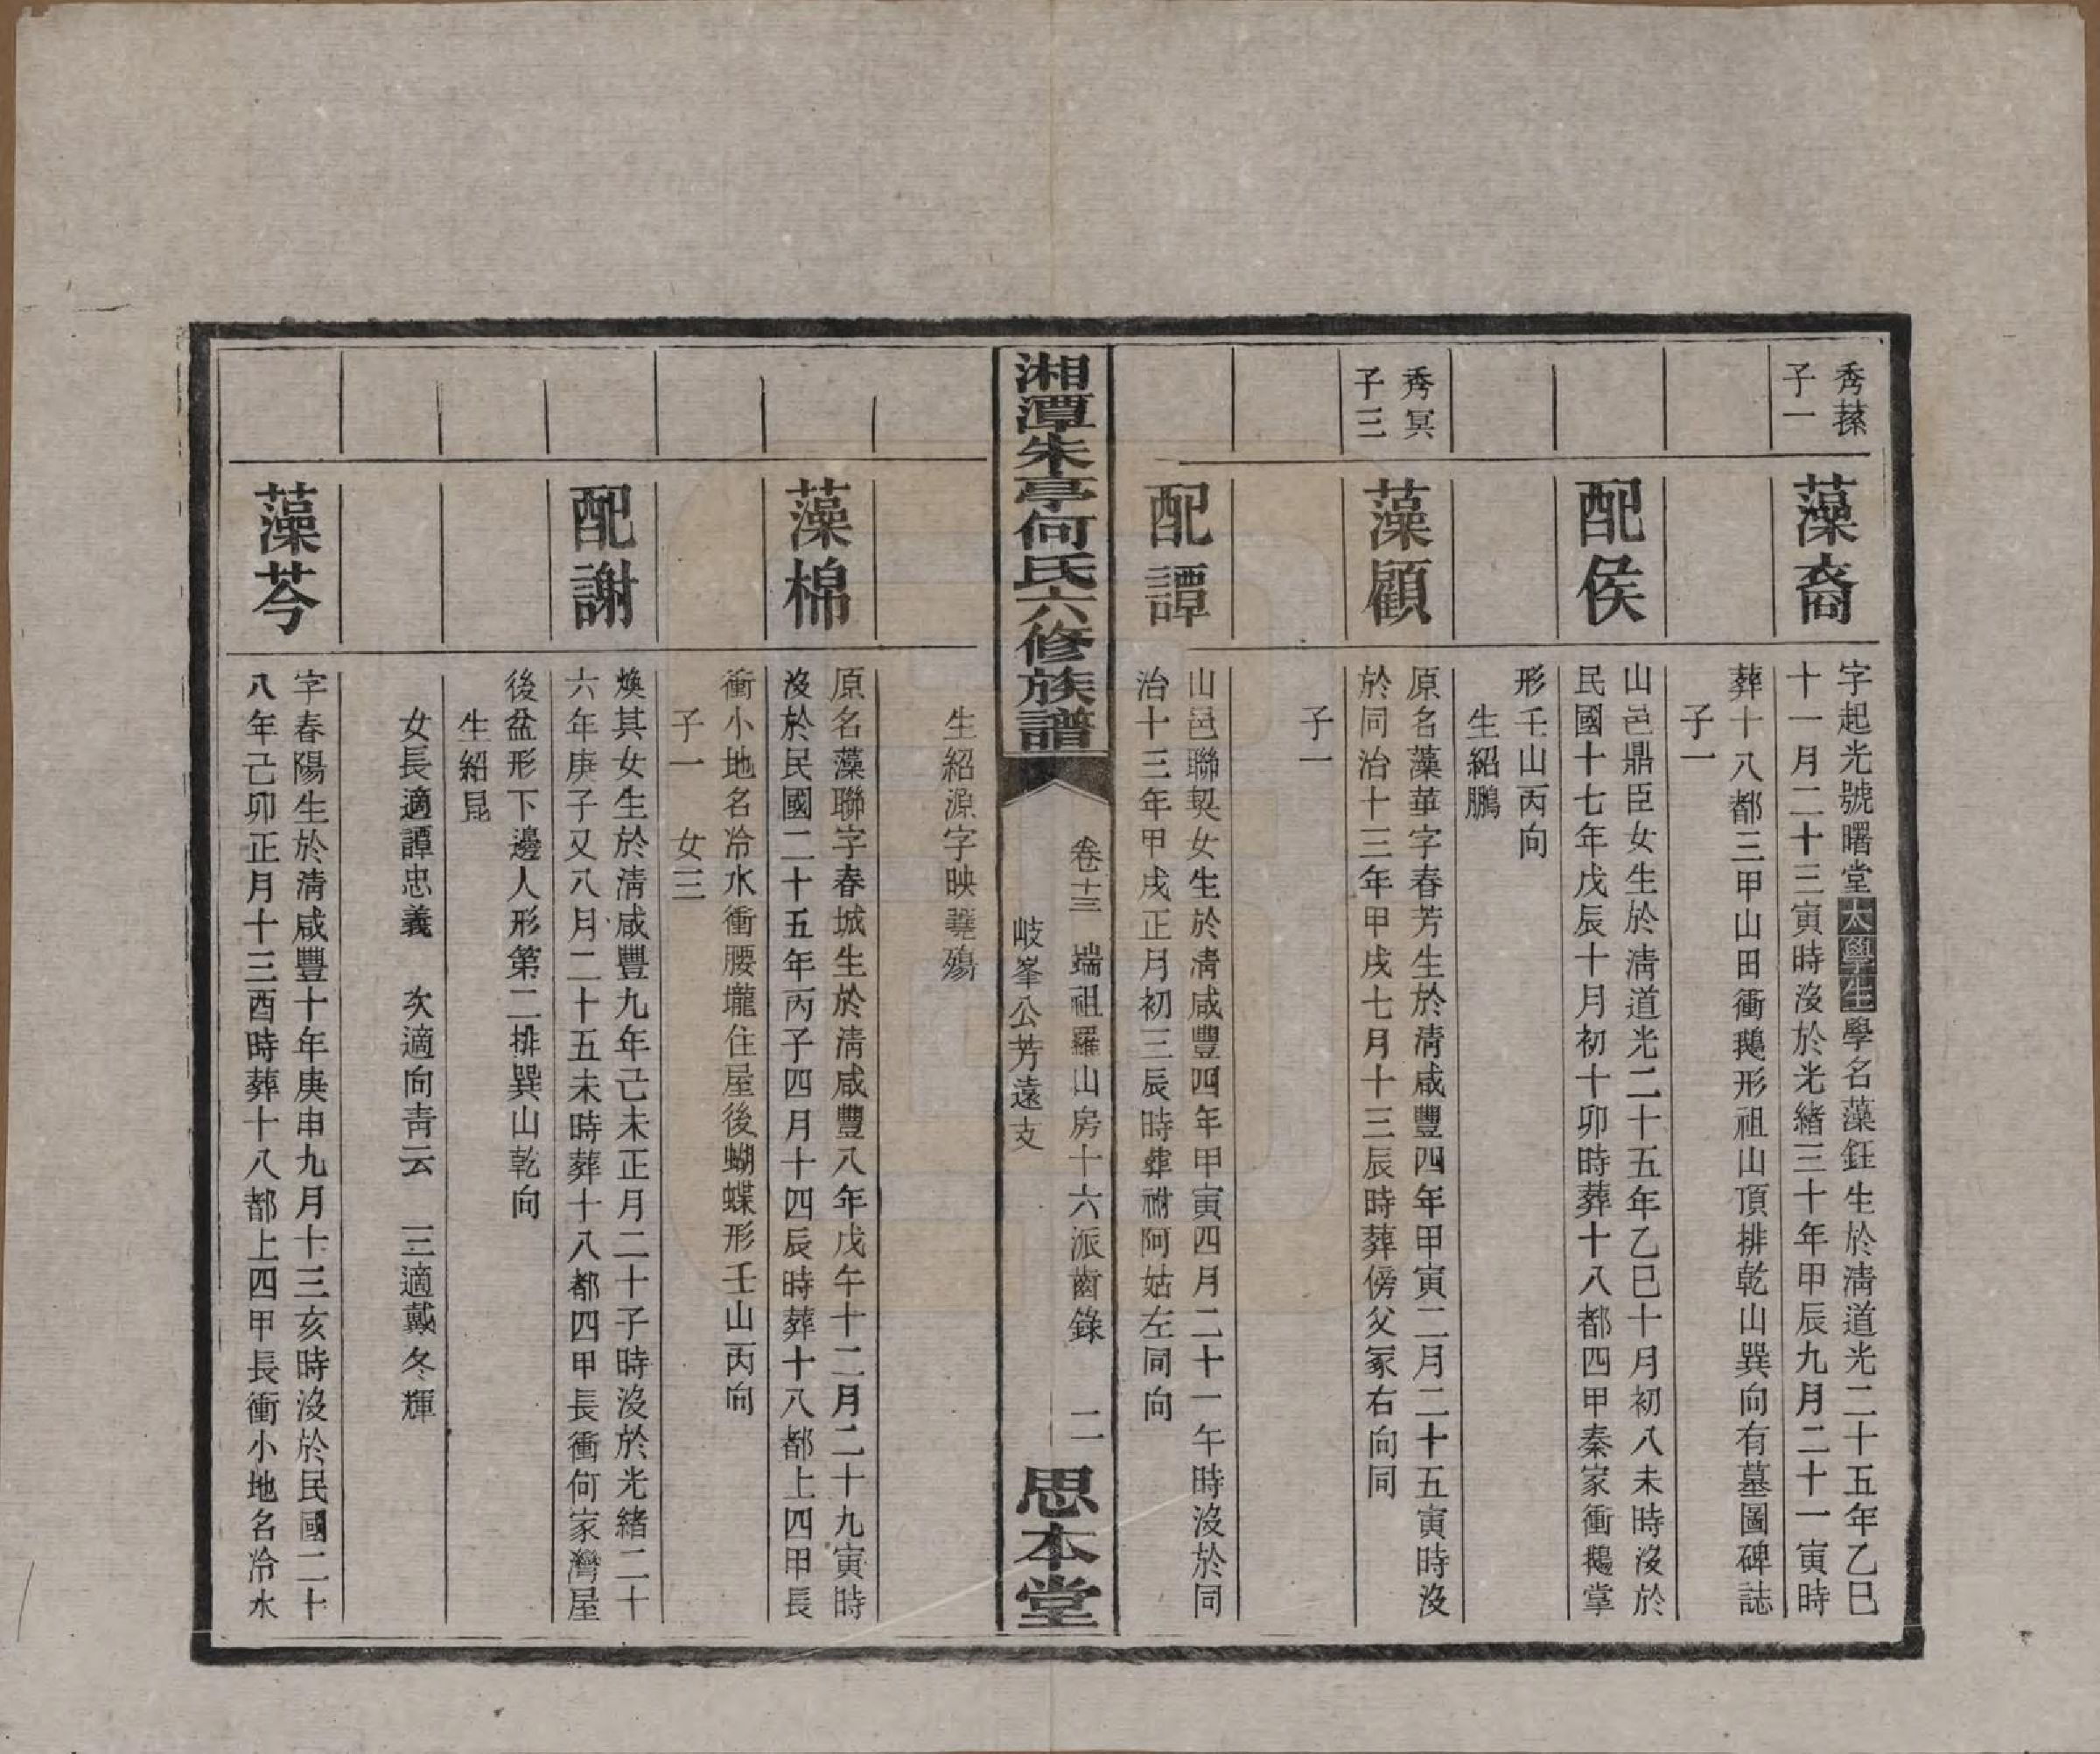 秀蓀
子一
藻裔
字起光號曙堂太學生學名藻鈺生於清道光二十五年乙巳
十一月二十三寅時沒於光緒三十年甲辰九月二十一寅時
葬十八都三甲山田衝鵝形祖山頂排乾山巽向有墓圖碑誌
子一
配侯
山邑鼎臣女生於清道光二十五年乙巳十月初八未時沒於
民國十七年戊辰十月初十卯時葬十八都四甲秦家衝鵝掌
形壬山丙向
生紹鵬
秀冥
子三
藻顧
原名藻華字春芳生於清咸豐四年甲寅二月二十五寅時沒
於同治十三年甲戌七月十三辰時葬傍父冢右向同
子一
配譚
山邑聯契女生於清咸豐四年甲寅四月二十一午時沒於同
治十三年甲戌正月初三辰時葬祔阿姑左同向
湘潭朱亭何氏六修族譜
卷十三 端祖羅山房十六派齒錄 二
岐峯公芳遠支
思本堂
生紹源字映蕘殤
藻棉
原名藻聯字春城生於清咸豐八年戊午十二月二十九寅時
沒於民國二十五年丙子四月十四辰時葬十八都上四甲長
衝小地名冷水衝腰壠住屋後蝴蝶形壬山丙向
子一 女三
配謝
煥其女生於清咸豐九年己未正月二十子時沒於光緒二十
六年庚子又八月二十五未時葬十八都四甲長衝何家灣屋
後盆形下邊人形第二排巽山乾向
生紹昆
女長適譚忠義 次適向青云 三適戴冬輝
藻芩
字春陽生於清咸豐十年庚申九月十三亥時沒於民國二十
八年己卯正月十三酉時葬十八都上四甲長衝小地名冷水